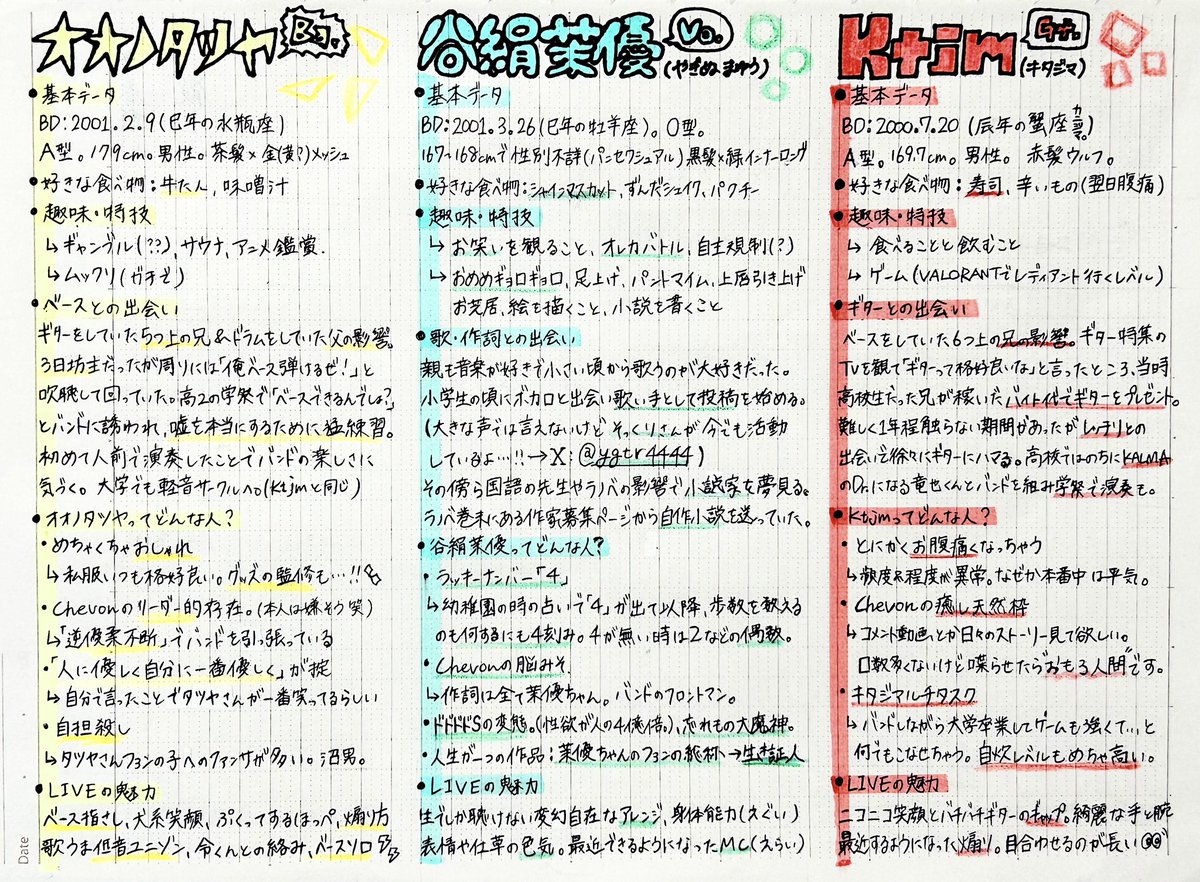 オオノタツヤ Ba.
・基本データ
BD:2001.2.9(巳年の水瓶座)
A型。179cm。男性。茶髪×金(黄?)メッシュ
・好きな食べ物:牛たん、味噌汁
・趣味・特技
↳ギャンブル(??)、サウナ、アニメ鑑賞.
↳ムックリ(ガチで)
・ベースとの出会い
ギターをしていた5つ上の兄&ドラムをしていた父の影響。
3日坊主だったが周りには「俺ベース弾けるぜ!」と
吹聴して回っていた。高2の学祭で「ベースできるんでしょ?」
とバンドに誘われ、嘘を本当にするために猛練習。
初めて人前で演奏したことでバンドの楽しさに
気づく。大学でも軽音サークルへ。(Ktjmと同じ)
・オオノタツヤってどんな人?
・めちゃくちゃおしゃれ
↳私服いつも格好良い。グッズの監修も…!!
・Chevonのリーダー的存在。(本人は嫌そう笑)
↳「逆優柔不断」でバンドを引っ張っている
・「人に優しく自分に一番優しく」が掟
↳自分で言ったことでタツヤさんが一番笑ってるらしい
・自担殺し
↳タツヤさんファンの子へのファンサが多い。沼男。
・LIVEの魅力
ベース指さし、犬系笑顔、ぷくってするほっぺ、煽り方
歌うま低音ユニゾン、令くんとの絡み、ベースソロ
谷絹茉優 Vo.
(やぎぬ まゆう)
・基本データ
BD:2001.3.26(巳年の牡羊座)。O型。
167~168cmで性別不詳(パンセクシュアル)黒髪×緑インナーロング
・好きな食べ物:シャインマスカット、ずんだシェイク、パクチー
・趣味・特技
↳お笑いを観ること、オレカバトル、自主規制(?)
↳おめめギョロギョロ、足上げ、パントマイム、上唇引き上げ
お芝居、絵を描くこと、小説を書くこと
・歌・作詞との出会い
親も音楽が好きで小さい頃から歌うのが大好きだった。
小学生の頃にボカロと出会い歌い手として投稿を始める。
(大きな声では言えないけど そっくりさんが今でも活動
しているよ…!!→X:@ygtr4444)
その傍ら国語の先生やラノベの影響で小説家を夢見る。
ラノベ巻末にある作家募集ページから自作小説を送っていた。
・谷絹茉優ってどんな人?
・ラッキーナンバー「4」
↳幼稚園の時の占いで「4」が出て以降、歩数を数える
のも何するにも4刻み。4が無い時は2などの偶数。
・Chevonの脳みそ.
↳作詞は全て茉優ちゃん。バンドのフロントマン。
・ドドドドSの変態。(性欲が人の4億倍)、忘れもの大魔神。
・人生が一つの作品:茉優ちゃんのファンの総称→生き証人
・LIVEの魅力
生でしか聴けない変幻自在なアレンジ、身体能力(えぐい)
表情や仕草の色気。最近できるようになったMC(えらい)
Ktjm Gt.
(キタジマ)
・基本データ
BD:2000.7.20(辰年の蟹座カニツマ。)
A型。169.7cm。男性。赤髪ウルフ。
・好きな食べ物:寿司、辛いもの(翌日腹痛)
・趣味・特技
↳食べることと飲むこと
↳ゲーム(VALORANTでレディアント行くレベル)
・ギターとの出会い
ベースをしていた6つ上の兄の影響。ギター特集の
TVを観て「ギターって格好良いな」と言ったところ、当時
高校生だった兄が稼いだバイト代でギターをプレゼント。
難しく1年程触らない期間があったがレッチリとの
出会いで徐々にギターにハマる。高校ではのちにKALMA
のDr.になる竜也くんとバンドを組み学祭で演奏も。
・Ktjmってどんな人?
・とにかくお腹痛くなっちゃう
↳頻度&程度が異常。なぜか本番中は平気。
・Chevonの癒し天然枠
↳コメント動画とか日々のストーリー見て欲しい。
口数多くないけど喋らせたら"おもろ人間"です。
・キタジマルチタスク
↳バンドしながら大学卒業してゲームも強くて…と
何でもこなせちゃう。自炊レベルもめちゃ高い。
・LIVEの魅力
ニコニコ笑顔とバチバチギターのギャップ。綺麗な手と腕
最近するようになった煽り。目合わせるのが長い
Date